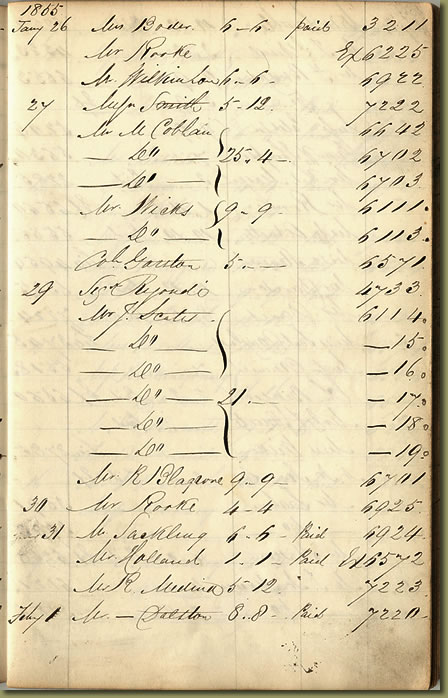 1865
Jany 26 Mrs Boder 6-6 paid 3211
Mr Rorke Ex 6225
Mr Wilkinson 6-6- 6922
27 Smith 5-12. 7222
Mr McCoblain 6642
— Do — 25.4- 6702
— Do — 6703
Mr Wicks 9-9- 6111.
— Do — 6113.
Coll. Gordon 5.-- 6571
29 4733
Mr J. Scates 6114.
— Do — —15.
— Do — —16.
— Do — 21.- —17.
— Do — —18.
— Do — —19.
Mr R Blagrove 9-9- 6701
30 Mr Rorke 4-4 6925.
31 M Sackling 6-6- Paid 6924
Mr Holland 1.-1- Paid Ex 6572
Mr R. Medina 5-12. 7223
Feby 1 M. — Dalston 8.-8- Paid 7220-